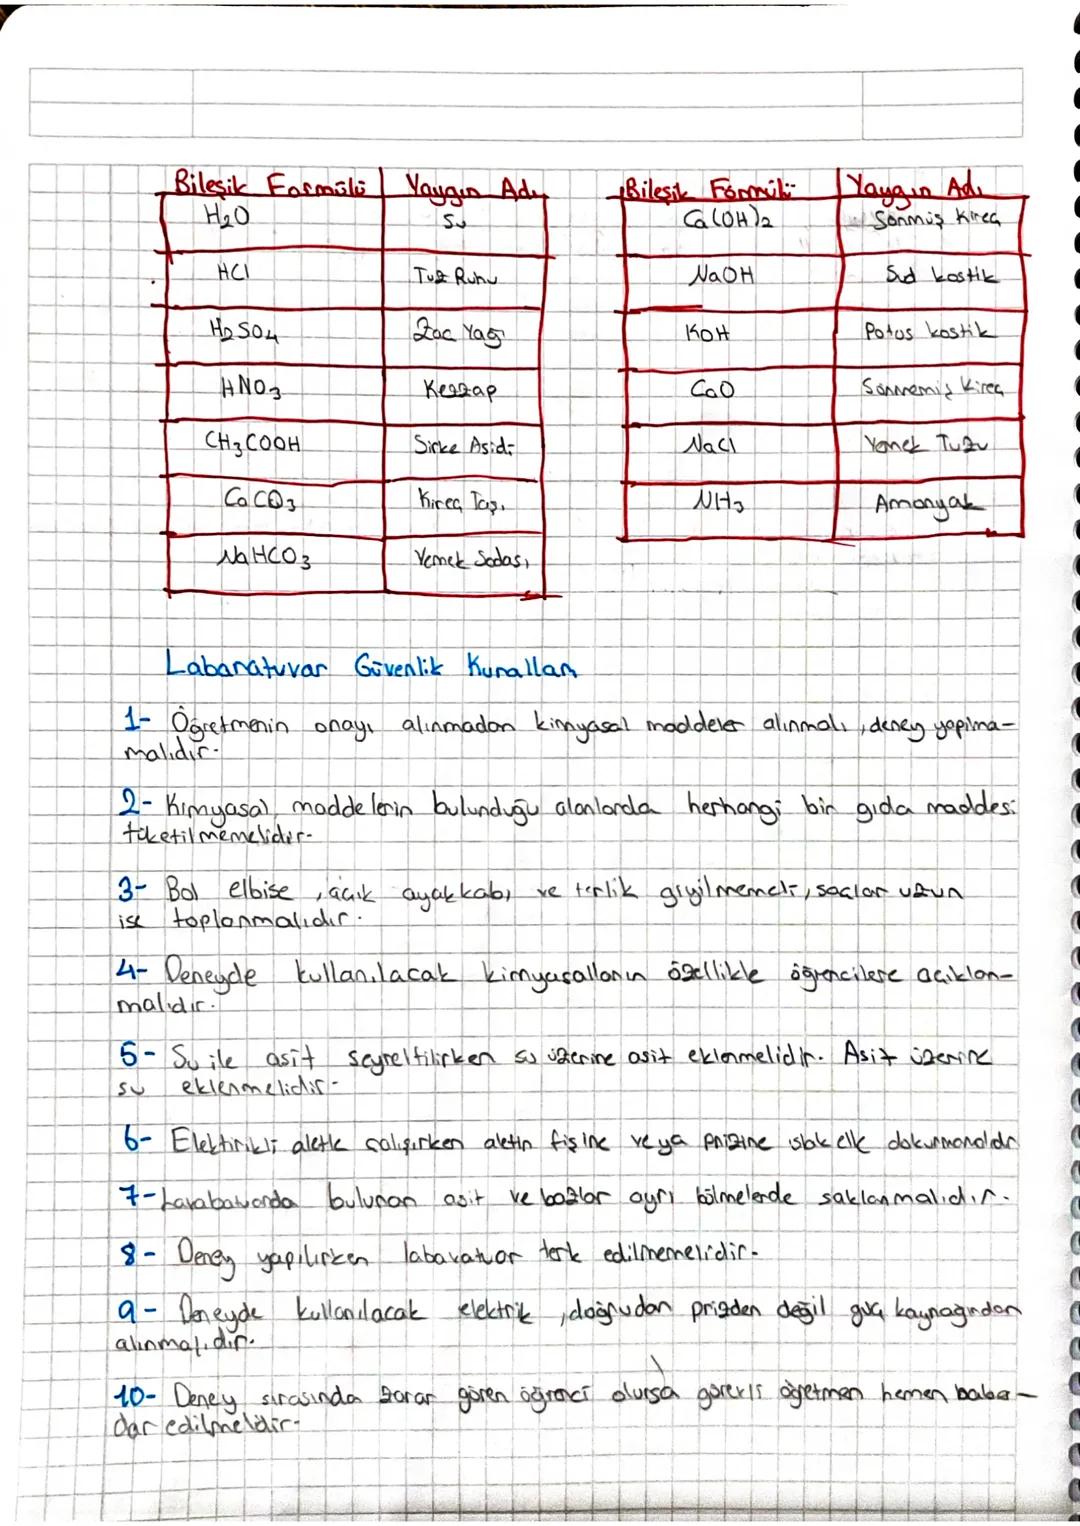 Bileşik Formülü Yaygın Adı
H₂O Su
HCl Tuz Ruhu
H₂SO₄ Zaç Yağı
HNO₃ Kezzap
CH₃COOH Sirke Asidi
CaCO₃ Kireç Taşı
NaHCO₃ Yemek Sodası
Bileşik Formülü Yaygın Adı
Ca(OH)₂ Sönmüş Kireç
NaOH Sud kostik
KOH Potas kostik
CaO Sönmemiş Kireç
NaCl Yemek Tuzu
NH₃ Amonyak
Labaratuvar Güvenlik Kuralları
1- Öğretmenin onayı alınmadan kimyasal maddeler alınmalı, deney yapılma-
malıdır.
2- Kimyasal maddelerin bulunduğu alanlarda herhangi bir gıda maddesi
tüketilmemelidir.
3- Bol elbise, açık ayakkabı ve terlik giyilmemeli, saçlar uzun
ise toplanmalıdır.
4- Deneyde kullanılacak kimyasalların özellikle öğrencilere açıklan-
malıdır.
5- Su ile asit seyreltilirken su üzerine asit eklenmelidir. Asit üzerine
su eklenmelidir.
6- Elektirikli aletle çalışırken aletin fişine veya prizine ıslak elle dokunmamalıdır
7- Larabatuvarda bulunan asit ve bazlar ayrı bölmelerde saklanmalıdır.
8- Deney yapılırken labaratuar terk edilmemelidir.
9- Deneyde kullanılacak elektrik, doğrudan prizden değil güç kaynağından
alınmalıdır.
10- Deney sırasında zarar gören öğrenci olursa görevli öğretmen hemen haber-
dar edilmeldir.